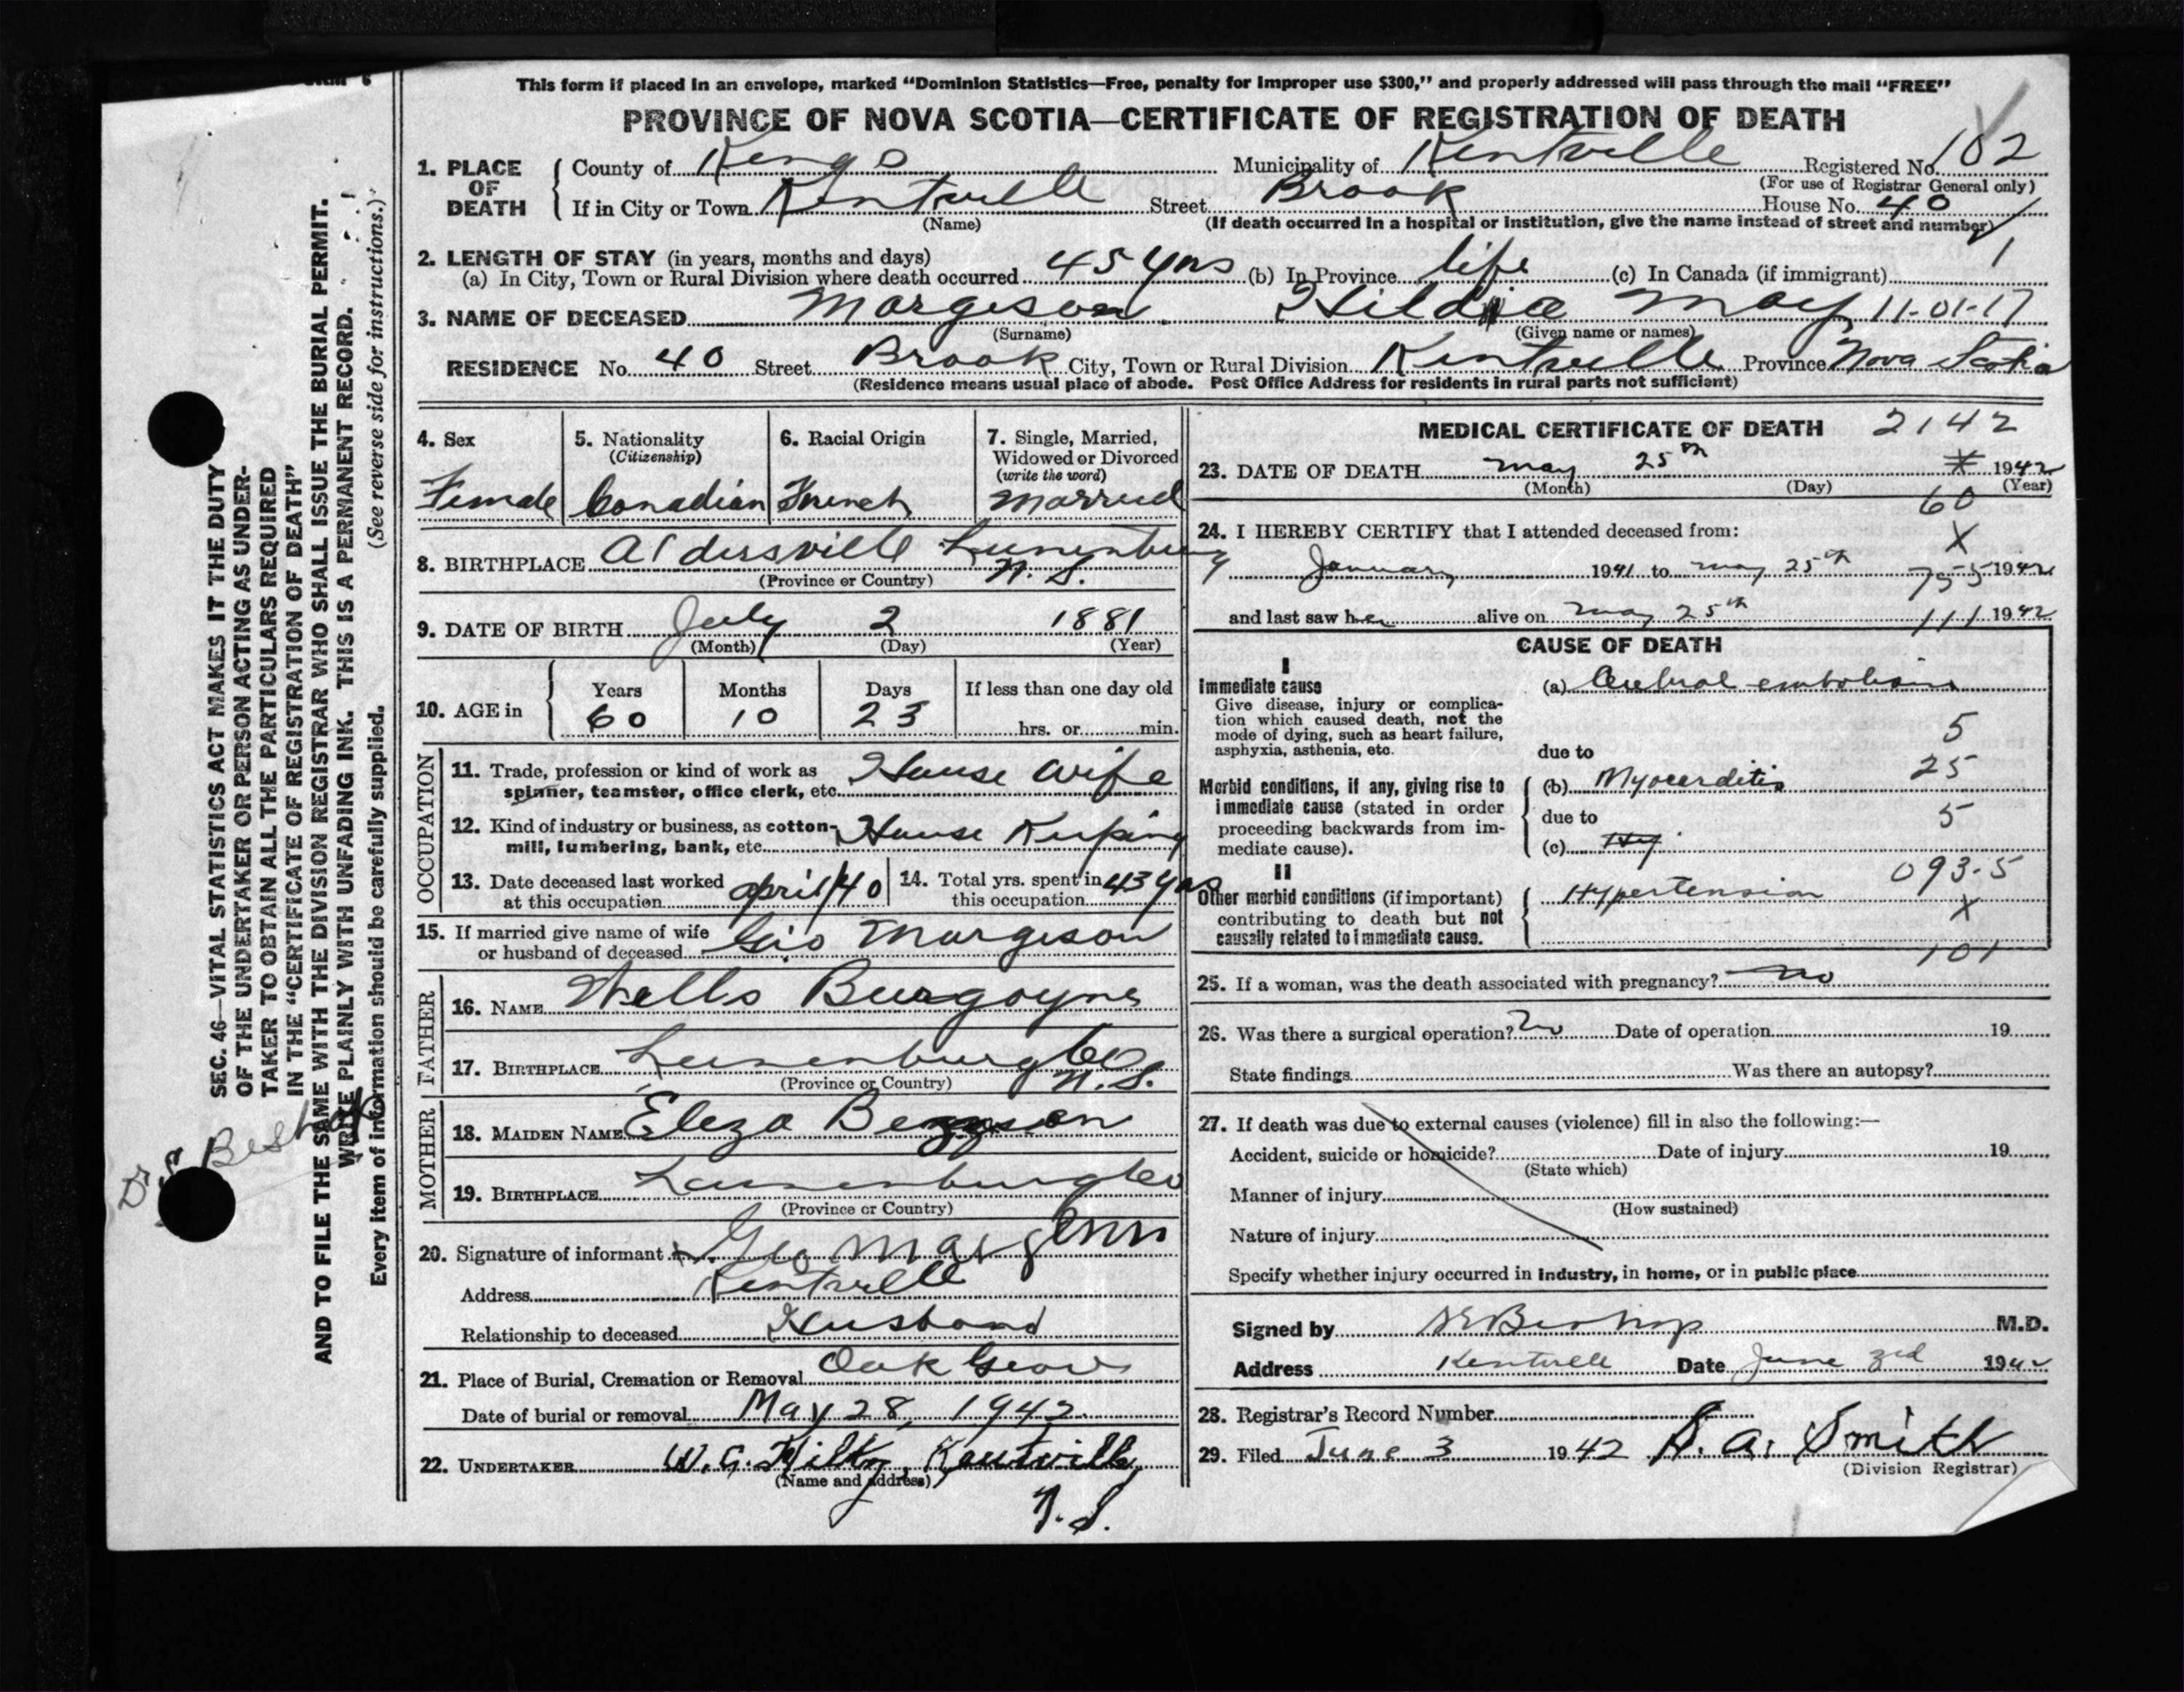 This form if placed in an envelope, marked "Dominion Statistics—Free, penalty for improper use $300," and properly addressed will pass through the mail "FREE"
PROVINCE OF NOVA SCOTIA—CERTIFICATE OF REGISTRATION OF DEATH
1. PLACE OF DEATH
County of Kings Municipality of Kentville Registered No. 102
(For use of Registrar General only)
If in City or Town Kentville Street Brook House No. 40
(Name) (If death occurred in a hospital or institution, give the name instead of street and number)
2. LENGTH OF STAY (in years, months and days)
(a) In City, Town or Rural Division where death occurred 45 yrs (b) In Province life (c) In Canada (if immigrant) 1
3. NAME OF DECEASED Margeson Hilda May 11-01-17
(Surname) (Given name or names)
RESIDENCE No. 40 Street Brook City, Town or Rural Division Kentville Province Nova Scotia
(Residence means usual place of abode. Post Office Address for residents in rural parts not sufficient)
4. Sex Female
5. Nationality (Citizenship) Canadian
6. Racial Origin French
7. Single, Married, Widowed or Divorced (write the word) Married
8. BIRTHPLACE Aldersville Lunenburg N.S.
(Province or Country)
9. DATE OF BIRTH July 2 1881
(Month) (Day) (Year)
10. AGE in Years 60 Months 10 Days 23 If less than one day old
hrs. or min.
OCCUPATION
11. Trade, profession or kind of work as spinner, teamster, office clerk, etc. House Wife
12. Kind of industry or business, as cotton-mill, lumbering, bank, etc. House Keeping
13. Date deceased last worked at this occupation April/40
14. Total yrs. spent in this occupation 43 yrs
15. If married give name of wife or husband of deceased Geo Margeson
FATHER
16. NAME Burgoyne
17. BIRTHPLACE Lunenburg Co N.S.
(Province or Country)
MOTHER
18. MAIDEN NAME Eleza
19. BIRTHPLACE Lunenburg Co
(Province or Country)
20. Signature of informant Geo Margeson
Address Kentville
Relationship to deceased Husband
21. Place of Burial, Cremation or Removal Oak Grove
Date of burial or removal May 28, 1942
22. UNDERTAKER W. G. Hiltz, Kentville,
(Name and address)
N.S.
MEDICAL CERTIFICATE OF DEATH 2142
23. DATE OF DEATH May 25th X 1942
(Month) (Day) (Year)
60
24. I HEREBY CERTIFY that I attended deceased from:
X
January 1941 to May 25th 755 1942
and last saw her alive on May 25th 111 1942
CAUSE OF DEATH
I
Immediate cause
Give disease, injury or complication which caused death, not the mode of dying, such as heart failure, asphyxia, asthenia, etc.
(a) Cerebral embolism
5
due to
Morbid conditions, if any, giving rise to immediate cause (stated in order proceeding backwards from immediate cause).
(b) Myocarditis 25
due to 5
(c) Hy
II
Other morbid conditions (if important) contributing to death but not causally related to immediate cause.
093-5
Hypertension
X
101
25. If a woman, was the death associated with pregnancy? no
26. Was there a surgical operation? No Date of operation 19
State findings Was there an autopsy?
27. If death was due to external causes (violence) fill in also the following:—
Accident, suicide or homicide? Date of injury 19
(State which)
Manner of injury
(How sustained)
Nature of injury
Specify whether injury occurred in industry, in home, or in public place
Signed by Bishop M.D.
Address Kentville Date June 3rd 1942
28. Registrar's Record Number
29. Filed June 3 1942 Smith
(Division Registrar)
SEC. 46—VITAL STATISTICS ACT MAKES IT THE DUTY
OF THE UNDERTAKER OR PERSON ACTING AS UNDER-
TAKER TO OBTAIN ALL THE PARTICULARS REQUIRED
IN THE "CERTIFICATE OF REGISTRATION OF DEATH"
AND TO FILE THE SAME WITH THE DIVISION REGISTRAR WHO SHALL ISSUE THE BURIAL PERMIT.
WRITE PLAINLY WITH UNFADING INK. THIS IS A PERMANENT RECORD.
Every item of information should be carefully supplied. (See reverse side for instructions.)
Bishop